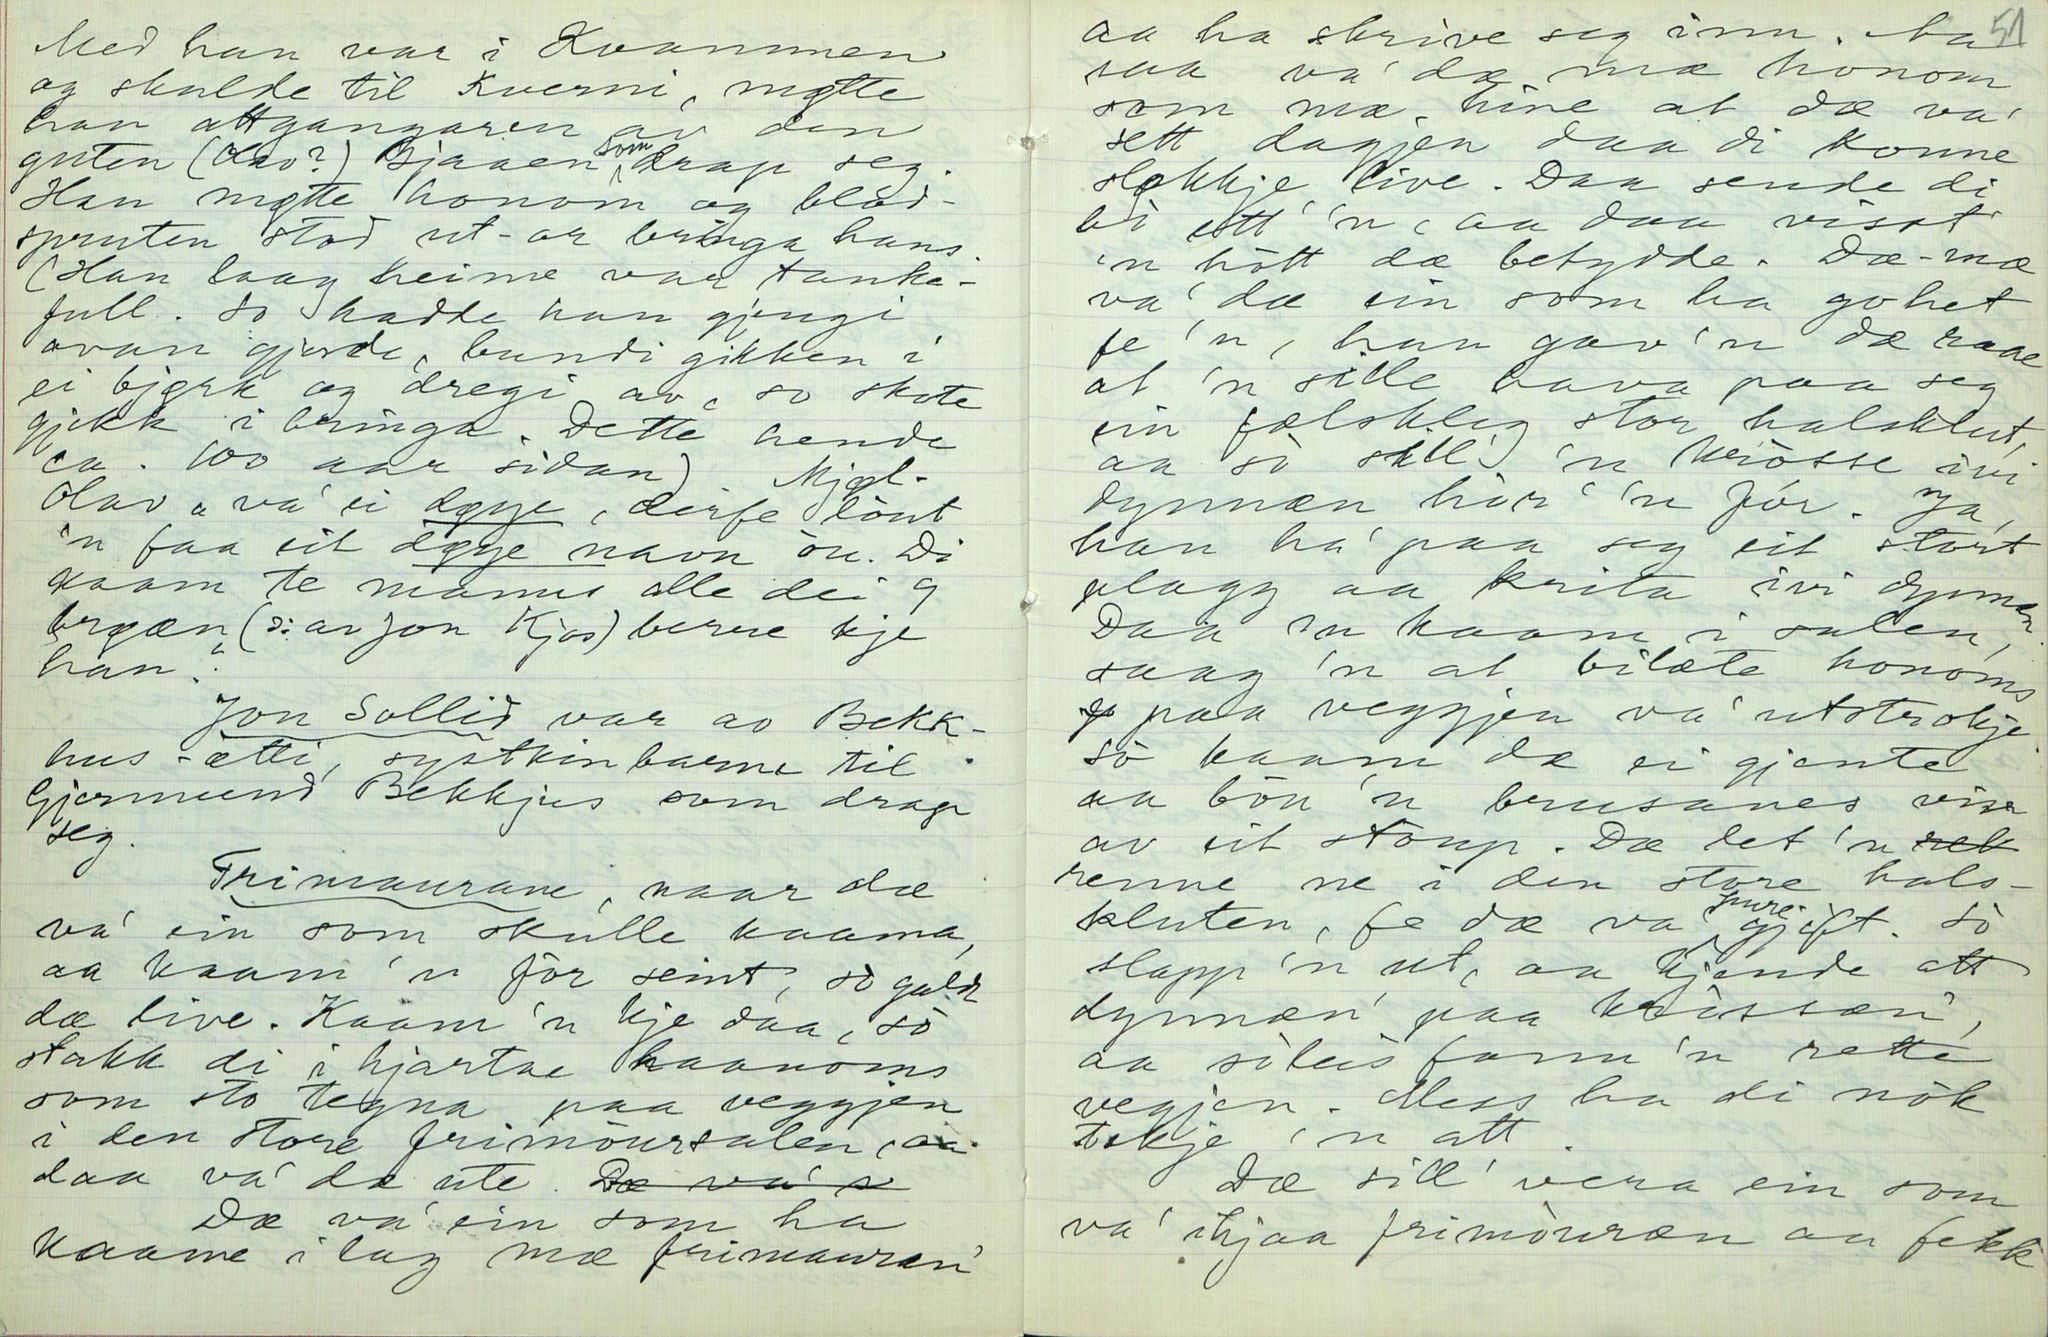 Med han var i Kvammen
og skulde til Kverni, møtte
han attgangaren av den
guten (Olav?) Bjaaen som drap seg.
Han møtte honom og blod-
spruten stod ut-or bringa hans.
(Han laag heime var tanke-
full. So hadde han gjengi
ovan gjerde, bundi gikken i
ei bjørk og dregi av, so skote
gjekk i bringa. Dette hende
ca. 100 aar sidan) Mjøl-
Olav "va' ei døye, difø lönt
'n faa eit døye navn ön. Di
kaam te manns alle dei 9
brøæn (ɔ: av Jon Kjos) berre kje
han."
Jon Sollid var av Bekk-
hus-ætti, systkinbarne til
Gjermund Bekkjus som drap
seg.
Frimaurane, naar dæ
va' ein som skulle kaama,
aa kaam 'n för seint, sö galdt
dæ live. Kaam 'n kje daa, sö
stakk di i hjartae haanoms
som sto tegna paa veggjen
i den store frimöursalen, aa
daa va' dæ ute. Dæ va' s
Dæ va' ein som ha
kaame i lag mæ frimauræn'
51
aa ha skrive seg inn. Aa
saa va' dæ mæ honom
som mæ hine at dæ va'
sett dagjen daa di konne
sløkkje live. Daa sende di
bö ett 'n, aa daa visst'
'n hött dæ betydde. Dæ-mæ
va' dæ ein som ha gohet
fe 'n, han gav 'n dæ raae
at 'n sille hava paa seg
ein fælskleg stor halsklut,
aa sö sill' 'n krösse ivi
dynnæn hör' 'n för. Ja,
han ha' paa seg eit stort
plagg aa krita ivi dynnæn.
Daa 'n kaam i salen,
saag 'n at bilæte honoms
paa veggjen va' utstrokje.
Sö kaam dæ ei gjente
aa böu 'n brusanes vin
av eit stoup. Dæ let 'n rek
renne ne i den store hals-
kluten, fe dæ va pure gjift. Sö
slapp 'n ut, aa kjende att
dynnæn' paa krössæn',
aa söleis fann 'n rette
vegjen. Mess ha di nök
tekje 'n att.
Dæ sill' vera ein som
va' ihjaa frimöuræn aa fekk